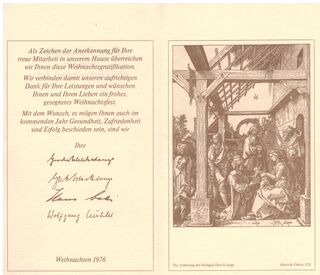 Als Zeichen der Anerkennung für Ihre
treue Mitarbeit in unserem Hause überreichen
wir Ihnen diese Weihnachtsgratifikation.
Wir verbinden damit unseren aufrichtigen
Dank für Ihre Leistungen und wünschen
Ihnen und Ihren Lieben ein frohes,
gesegnetes Weihnachtsfest.
Mit dem Wunsch, es mögen Ihnen auch im
kommenden Jahr Gesundheit, Zufriedenheit
und Erfolg beschieden sein, sind wir
Ihre
Hans
Wolfgang
Weihnachten 1976
Die Anbetung der Heiligen Drei Könige
Albrecht Dürer, 1511